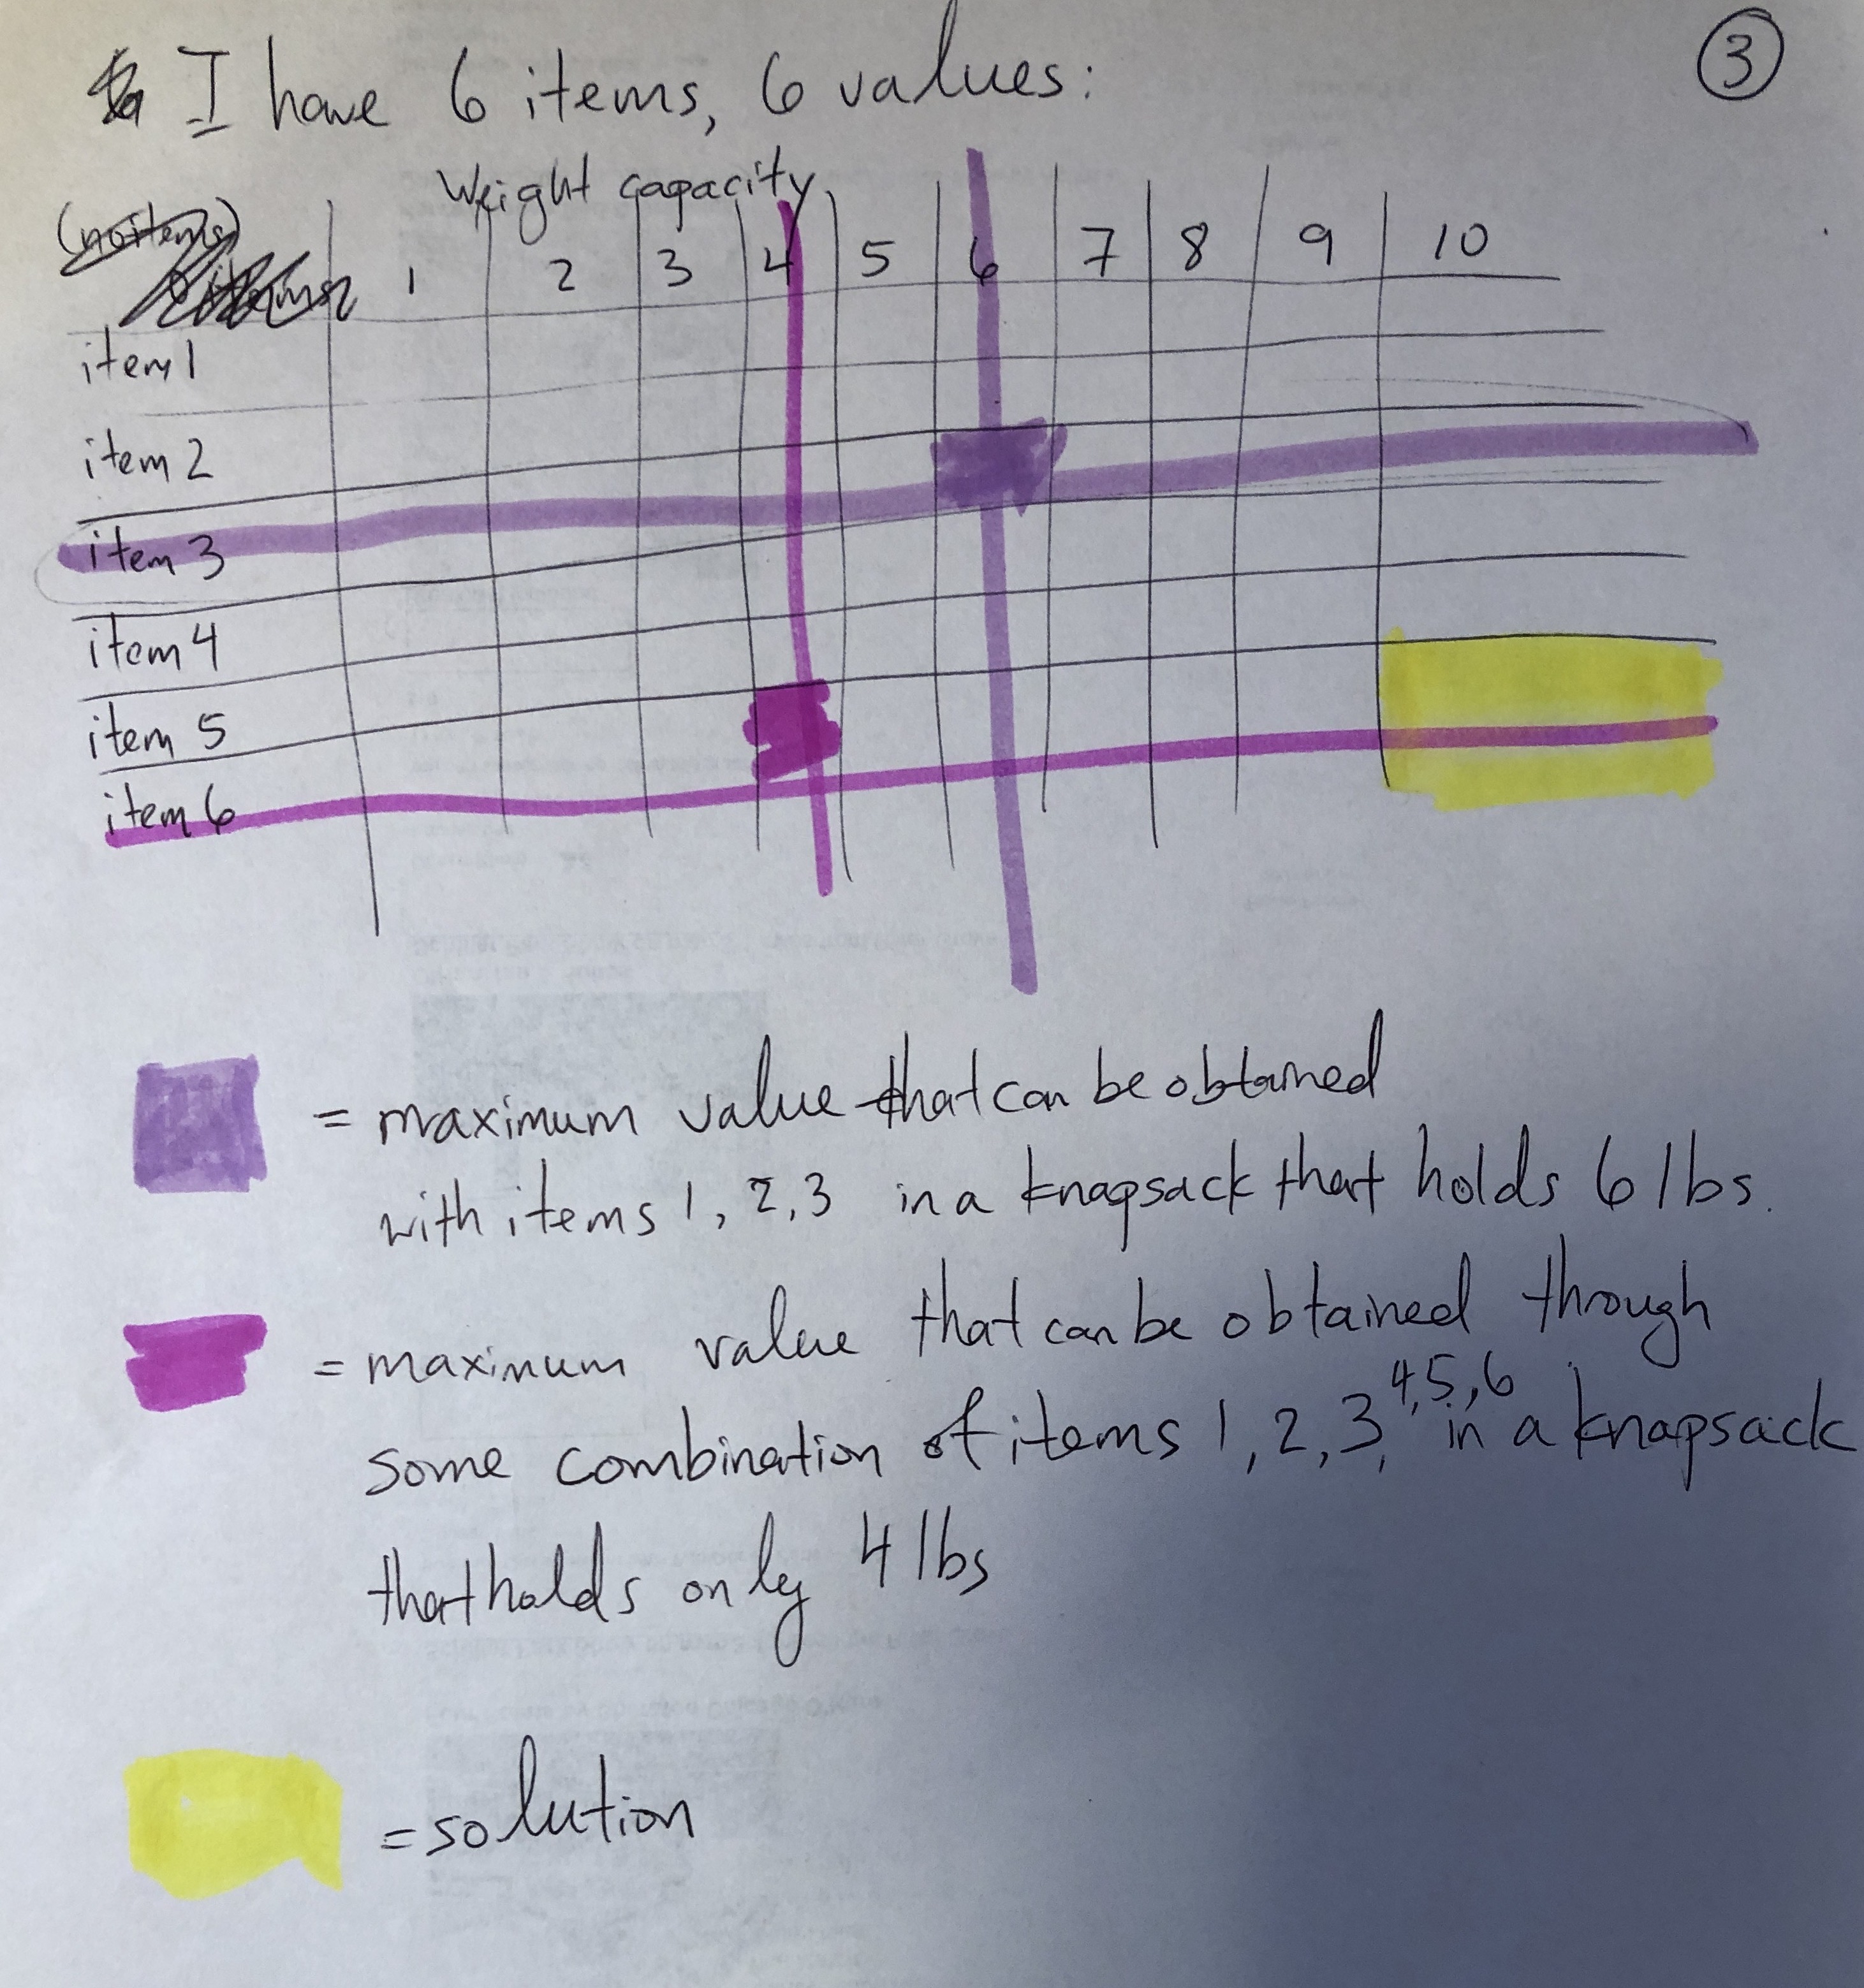 I have 6 items, 6 values:
3
Weight capacity
(no items)
1 2 3 4 5 6 7 8 9 10
item 1
item 2
item 3
item 4
item 5
item 6
= maximum value that can be obtained
with items 1, 2, 3 in a knapsack that holds 6 lbs.
= maximum value that can be obtained through
4, 5, 6
some combination of items 1, 2, 3, in a knapsack
that holds only 4 lbs
= solution